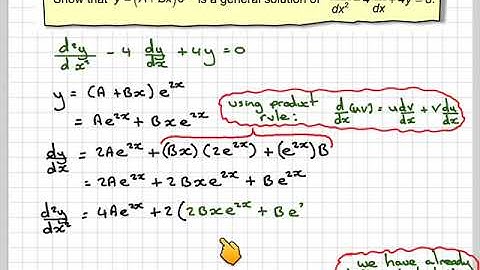 Show that y = (A + Bx)e is a general solution of d²y/dx² - 4 dy/dx + 4y = 0.
d²y/dx² - 4 dy/dx + 4y = 0
y = (A + Bx) e^2x
= Ae^2x + Bxe^2x
using product rule: d/dx (uv) = u dv/dx + v du/dx
dy/dx = 2Ae^2x + (Bx)(2e^2x) + (e^2x)B
= 2Ae^2x + 2Bxe^2x + Be^2x
d²y/dx² = 4Ae^2x + 2(2Bxe^2x + Be²
we have already